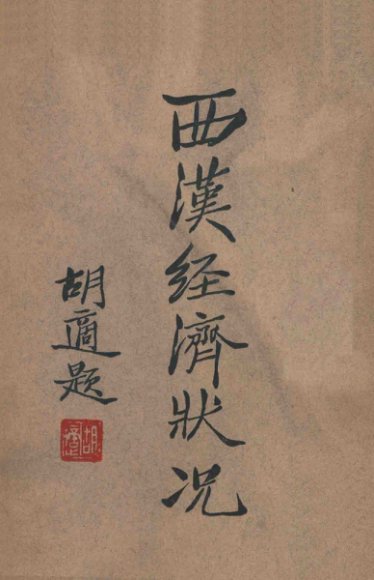 西漢经濟狀况
胡適题
胡適